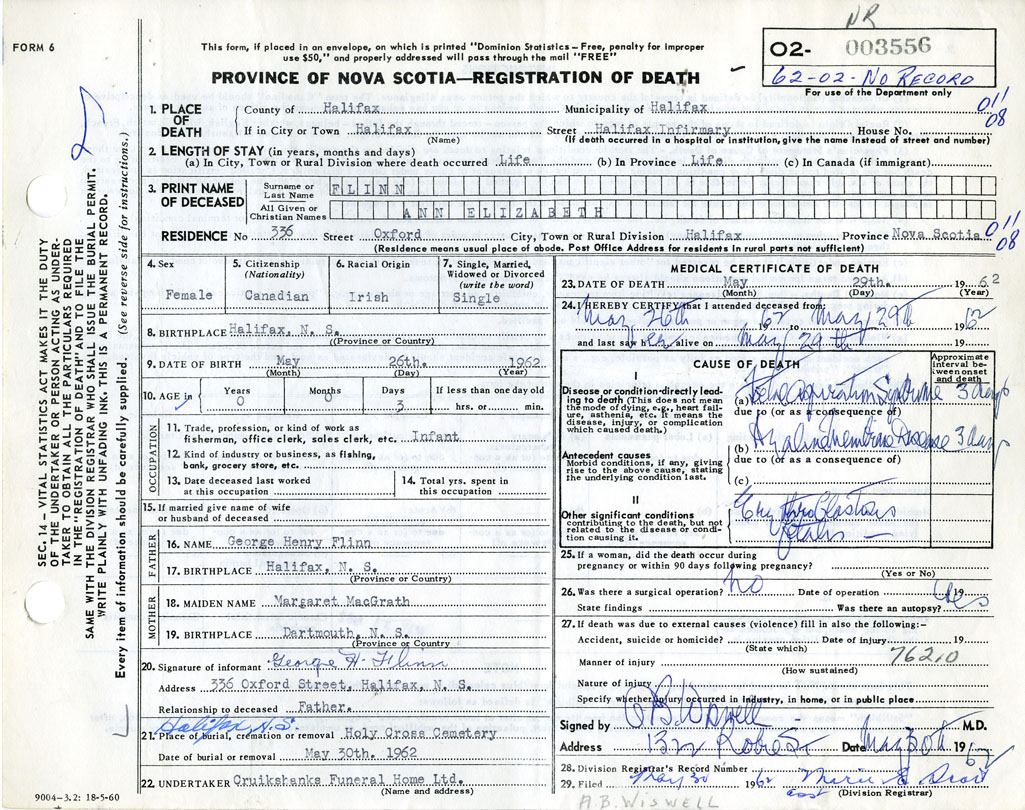 NR
FORM 6
This form, if placed in an envelope, on which is printed "Dominion Statistics – Free, penalty for improper
use $50," and properly addressed will pass through the mail "FREE"
O2- 003556
62-02-No Record
For use of the Department only
PROVINCE OF NOVA SCOTIA—REGISTRATION OF DEATH
SEC. 14 – VITAL STATISTICS ACT MAKES IT THE DUTY
OF THE UNDERTAKER OR PERSON ACTING AS UNDER-
TAKER TO OBTAIN ALL THE PARTICULARS REQUIRED
IN THE "REGISTRATION OF DEATH" AND TO FILE THE
SAME WITH THE DIVISION REGISTRAR WHO SHALL ISSUE THE BURIAL PERMIT.
WRITE PLAINLY WITH UNFADING INK. THIS IS A PERMANENT RECORD.
Every item of information should be carefully supplied. (See reverse side for instructions.)
1. PLACE OF DEATH
County of Halifax Municipality of Halifax 011 08
If in City or Town Halifax Street Halifax Infirmary House No.
(Name) (If death occurred in a hospital or institution, give the name instead of street and number)
2. LENGTH OF STAY (in years, months and days)
(a) In City, Town or Rural Division where death occurred Life (b) In Province Life (c) In Canada (if immigrant)
3. PRINT NAME OF DECEASED
Surname or Last Name FLINN
All Given or Christian Names ANN ELIZABETH
RESIDENCE No 336 Street Oxford City, Town or Rural Division Halifax Province Nova Scotia 011 08
(Residence means usual place of abode. Post Office Address for residents in rural parts not sufficient)
4. Sex Female
5. Citizenship (Nationality) Canadian
6. Racial Origin Irish
7. Single, Married, Widowed or Divorced (write the word) Single
8. BIRTHPLACE Halifax, N. S.
(Province or Country)
9. DATE OF BIRTH May 26th. 1962
(Month) (Day) (Year)
10. AGE in Years 0 Months 0 Days 3 If less than one day old hrs. or min.
OCCUPATION
11. Trade, profession, or kind of work as
fisherman, office clerk, sales clerk, etc. Infant
12. Kind of industry or business, as fishing,
bank, grocery store, etc.
13. Date deceased last worked
at this occupation
14. Total yrs. spent in
this occupation
15. If married give name of wife
or husband of deceased
FATHER
16. NAME George Henry Flinn
17. BIRTHPLACE Halifax, N. S.
(Province or Country)
MOTHER
18. MAIDEN NAME Margaret MacGrath
19. BIRTHPLACE Dartmouth, N. S.
(Province or Country
20. Signature of informant George H. Flinn
Address 336 Oxford Street, Halifax, N. S.
Relationship to deceased Father.
Halifax, N.S.
21. Place of burial, cremation or removal Holy Cross Cemetery
Date of burial or removal May 30th. 1962
22. UNDERTAKER Cruikshanks Funeral Home Ltd.
(Name and address)
9004–3.2: 18-5-60
MEDICAL CERTIFICATE OF DEATH
23. DATE OF DEATH May 29th. 1962
(Month) (Day) (Year)
24. I HEREBY CERTIFY that I attended deceased from:
May 26th 1962 to May 29th 1962
and last saw her alive on May 29th 1962
CAUSE OF DEATH
Approximate interval between onset and death
I
Disease or condition directly leading to death (This does not mean the mode of dying, e.g., heart failure, asthenia, etc. It means the disease, injury, or complication which caused death.)
(a) Aspiration Syndrome 3 days
due to (or as a consequence of)
Antecedent causes
Morbid conditions, if any, giving rise to the above cause, stating the underlying condition last.
(b) Hyaline Membrane Disease 3 days
due to (or as a consequence of)
(c)
II
Other significant conditions
contributing to the death, but not related to the disease or condition causing it.
Erythroblastosis
fetalis
25. If a woman, did the death occur during
pregnancy or within 90 days following pregnancy?
(Yes or No)
26. Was there a surgical operation? No Date of operation 19
State findings Was there an autopsy? Yes
27. If death was due to external causes (violence) fill in also the following:-
Accident, suicide or homicide? Date of injury 19
(State which)
Manner of injury 762,0
(How sustained)
Nature of injury
Specify whether injury occurred in industry, in home, or in public place
Signed by A B Wiswell M.D.
Address Robie St Date May 30th 1962
28. Division Registrar's Record Number
29. Filed May 30 1962 Marie
asst (Division Registrar)
A.B. WISWELL